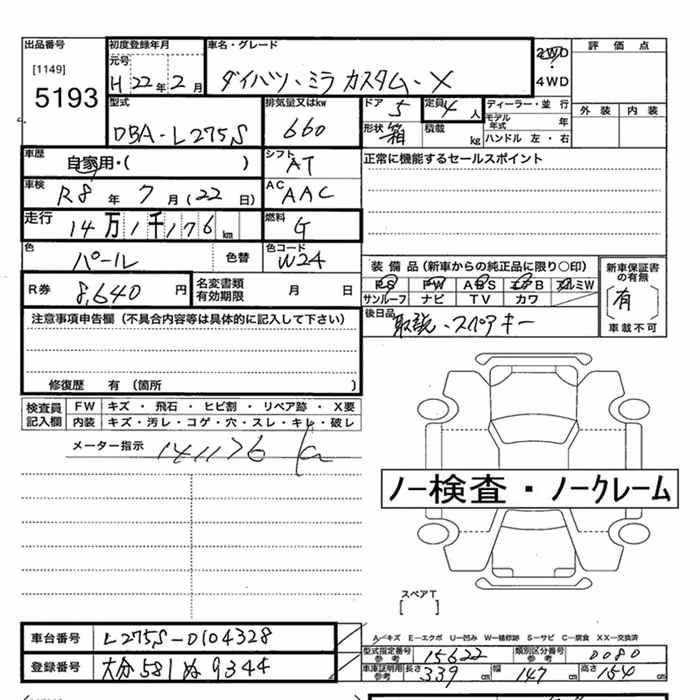 出品番号 初度登録年月 車名・グレード 2WD 評価点
[1149] 元号 4WD
5193 H 22年 2月 ダイハツ・ミラ カスタム・X
型式 排気量又はkw ドア 5 定員 4人 ディーラー・並行 外装 内装
DBA-L275S 660 形状 箱 積載 kg モデル年式 年
ハンドル 左・右
車歴 自家用・( ) シフト AT 正常に機能するセールスポイント
車検 R8年 7月(22日) AC AAC
走行 14万1千176km 燃料 G
色 パール 色替 色コード W24
装備品(新車からの純正品に限り○印) 新車保証書の有無
R券 8,640円 名変書類有効期限 月 日 PS PW ABS エアB アルミW [有]
サンルーフ ナビ TV カワ
注意事項申告欄(不具合内容等は具体的に記入して下さい) 後日品 取説・スペアキー 車載不可
修復歴 有(箇所 )
検査員記入欄 FW キズ・飛石・ヒビ割・リペア跡・X要
内装 キズ・汚レ・コゲ・穴・スレ・キレ・破レ
メーター指示 141176 km
ノー検査・ノークレーム
スペアT
[ ]
A-キズ E-エクボ U-凹み W-補修跡 S-サビ C-腐食 XX-交換済
車台番号 L275S-0104328 型式指定番号 参考 15622 類別区分番号 参考 0080
登録番号 大分 581 ぬ 9344 車庫証明用 参考 長さ 339cm 幅 147cm 高さ 154cm